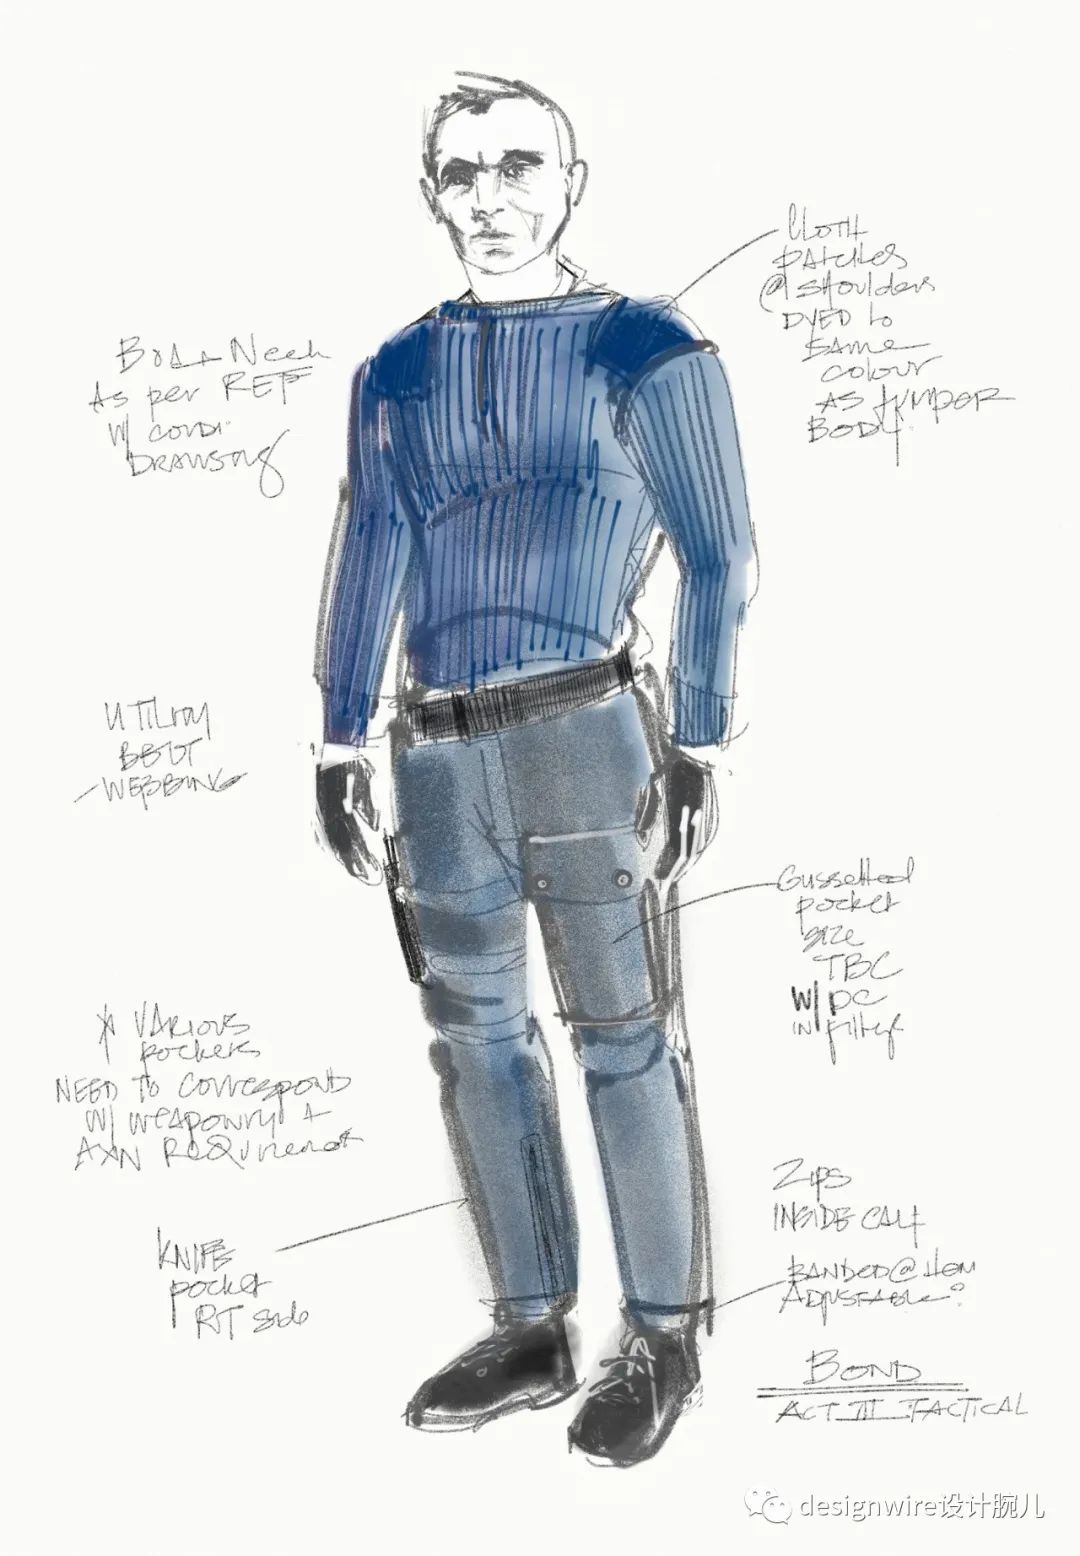 CLOTH
PATCHES
@ SHOULDERS
DYED to
SAME
COLOUR
AS JUMPER
BODY.
Boat Neck
As per REF
W/ CORD
DRAWSTRING
UTILITY
BELT
WEBBING
Gussetted
pocket
SIZE
TBC
W/ PC
IN
* VARIOUS
POCKETS
NEED TO CORRESPOND
W/ WEAPONRY +
AXN REQUIREMENT
KNIFE
pocket
RT Side
Zips
INSIDE CALF
BANDED @ HEM
ADJUSTABLE?
BOND
ACT III TACTICAL
designwire设计腕儿